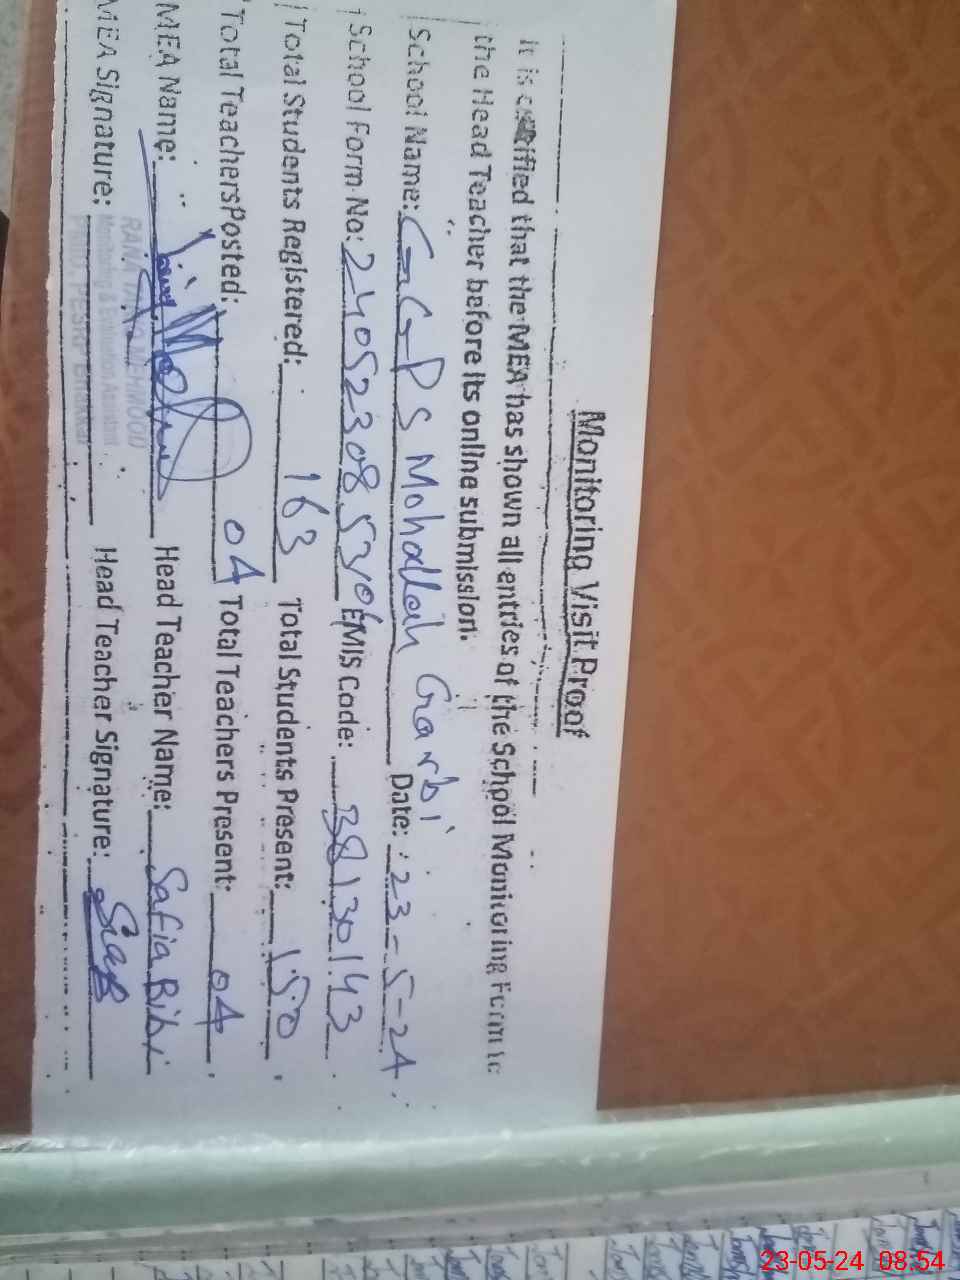 Monitoring Visit Proof
It is certified that the MEA has shown all entries of the School Monitoring Form to
the Head Teacher before its online submission.
School Name: GGPS Mohallah Garbi Date: 23-5-24
School Form No: EMIS Code: 38130143
Total Students Registered: 163 Total Students Present: 150
Total TeachersPosted: 04 Total Teachers Present: 04
MEA Name: Head Teacher Name: Safia Bibi
MEA Signature: Head Teacher Signature:
RANA TARIQ MEHMOOD
Monitoring & Evaluation Assistant
PMIU, PESRP Bhakkar
23-05-24 08:54